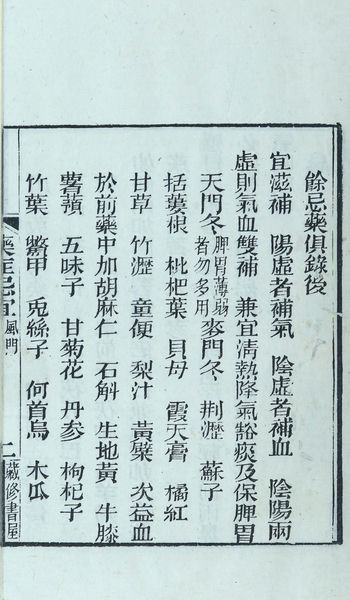 餘忌藥俱錄後
宜滋補　陽虛者補氣　陰虛者補血　陰陽兩
虛則氣血雙補　兼宜淸熱降氣豁痰及保脾胃
天門冬脾胃薄弱者勿多用　麥門冬　荆瀝　蘇子
括蔞根　枇杷葉　貝母　霞天膏　橘紅
甘草　竹瀝　童便　梨汁　黃蘗　次益血
於前藥中加胡麻仁　石斛　生地黃　牛膝
薯蕷　五味子　甘菊花　丹參　枸杞子
竹葉　鱉甲　兎絲子　何首烏　木瓜
藥症忌宜　風門　二　藏修書屋